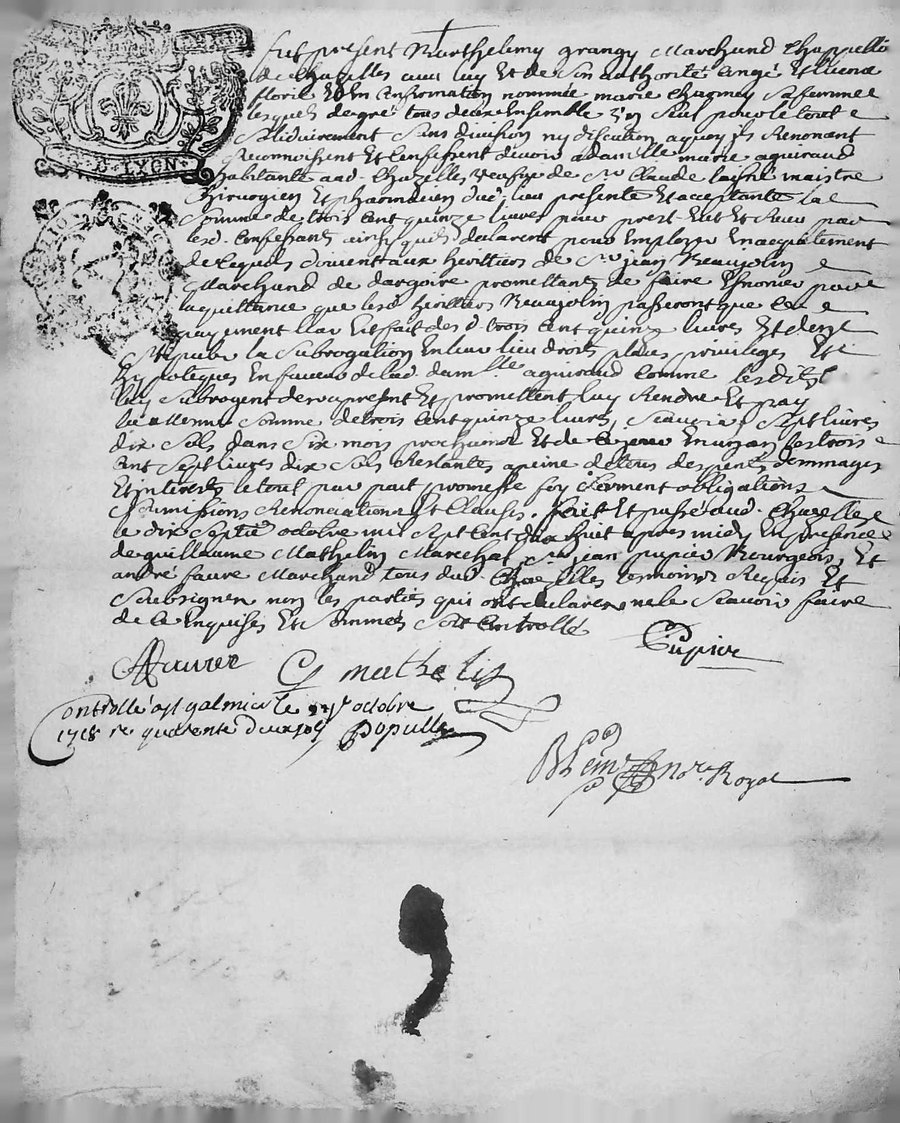 G. LYON
fut present Barthelemy grangy Marchand Chappellie
de Chazelles avec luy Et de Son authorité
florie Et En Confirmation nommée marie charmey Sa femme
lesquels de gré tous deux Ensemble Seul pour le tout
Solidairement Sans division ny discution a quoy ils Renonant
Reconnoissent Et Confessent devoir a dam.lle marie aguiraud
habitante aud. Chazelles Veufve de Sr Claude laisné maistre
Chirurgien Et pharmatien dud. lieu presente Et acceptante la
Somme de trois Cent quinze livres pour prest Eut Et Receu par
lesd. Confessants ainsy quils declarent pour Employer En acquitement
de Ce quils doivent aux heritiers de Sr jean Beaujolin
Marchand de dargoire promettants de faire Enoncer pour
la quittance que lesd heritiers Beaujolin passeront que Ce
payement leur Est fait des d. trois Cent quinze livres Et den
Stipuler la Subrogation En leur lieu droits places privileges Et
hypoteques En faveur de lad. dam.lle aguiraud Comme lesdits
luy Subrogent des a present Et promettent luy Rendre Et pay
lad. Somme de trois Cent quinze livres, Scavoir Sept livres
dix Sols dans Six mois prochains Et de Ce jour En un an les trois
Cent Sept livres dix Sols Restantes a peine de tous despents dommages
Et interets le tout par pait promesse foy Serment obligations
Soumissions Renonciations Et Clauses. fait Et passé aud. Chazelles
le dix Septie octobre mil Sept Cent dix huit apres midy En presence
de guillaume Mathelin Marechal Sr jean pupier Bourgeois, Et
andré faure Marchand tous dud. Chazelles temoins Requis Et
Subsignez non les parties qui ont declarer ne le Scavoir faire
de Ce Enquises Et Sommes Soit Controllé
Pupier
AFaure G mathelin
Controllé a St galmier le octobre
1718 re quarente deux sols Populle
Royal